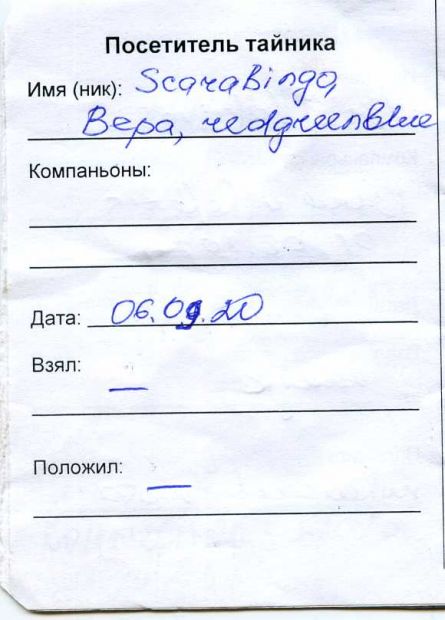 Посетитель тайника
Имя (ник): Scarabingo,
Вера, redgreenblue
Компаньоны:
Дата: 06.09.20
Взял: —
Положил: —